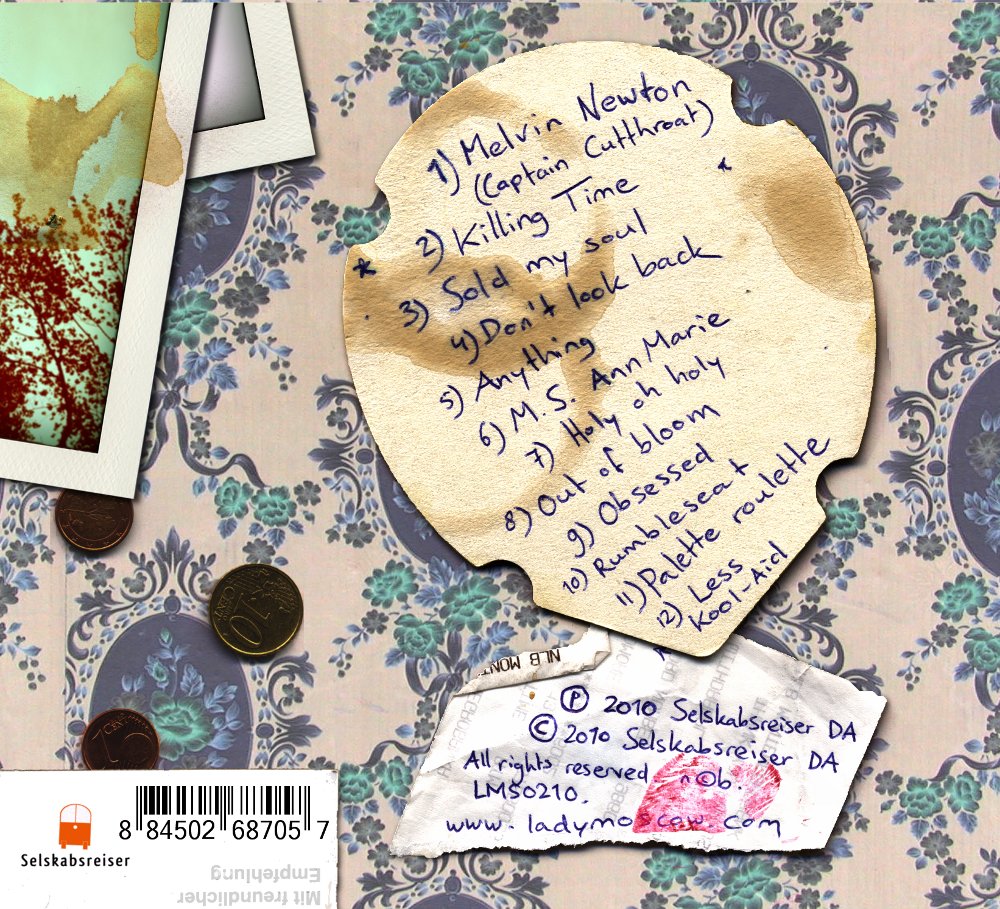 1) Melvin Newton
(Captain Cutthroat)
2) Killing Time
3) Sold my soul
4) Don't look back
5) Anything
6) M.S. Ann Marie
7) Holy oh holy
8) Out of bloom
9) Obsessed
10) Rumbleseat
11) Palette roulette
12) Less
Kool-Aid
NLB MON
Ⓟ 2010 Selskabsreiser DA
© 2010 Selskabsreiser DA
All rights reserved n©b.
LMS0210.
www.ladymoscow.com
10
CENT
1
CENT
8 84502 68705 7
Selskabsreiser
Mit freundlicher
Empfehlung